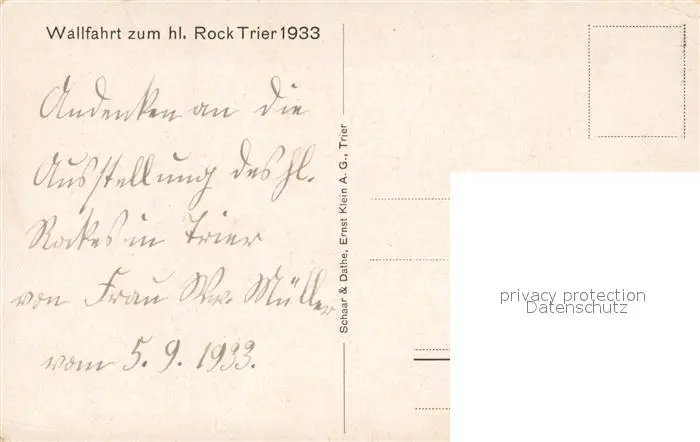 Wallfahrt zum hl. Rock Trier 1933
Andenken an die
Ausstellung des hl.
Rockes in Trier
von Frau Wr. Müller
vom 5. 9. 1933.
Schaar & Dathe, Ernst Klein A. G., Trier
privacy protection
Datenschutz